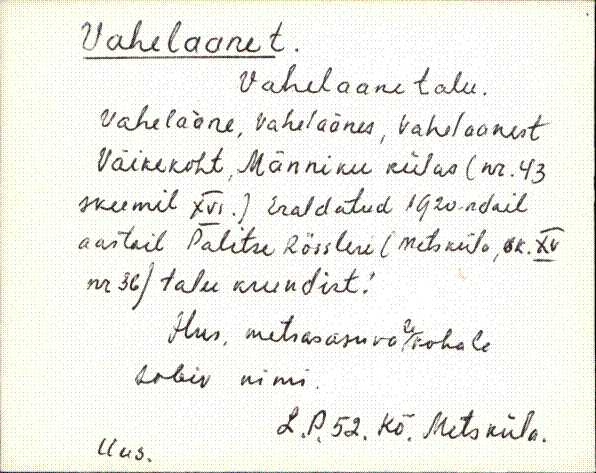 Vahelaane t.
Vahelaane talu.
Vaheläane, vaheläanes, vahelaanest
Väikekoht, Männiku külas (nr. 43
skeemil XVI.) Eraldatud 1920-ndail
aastail Pälitse Rössleri (Metsküla, sk. XV
nr 36) talu krundist.
Ilus, metsasasuvale kohale
sobiv nimi.
L.P. 52. Kö. Metsküla.
Uus.